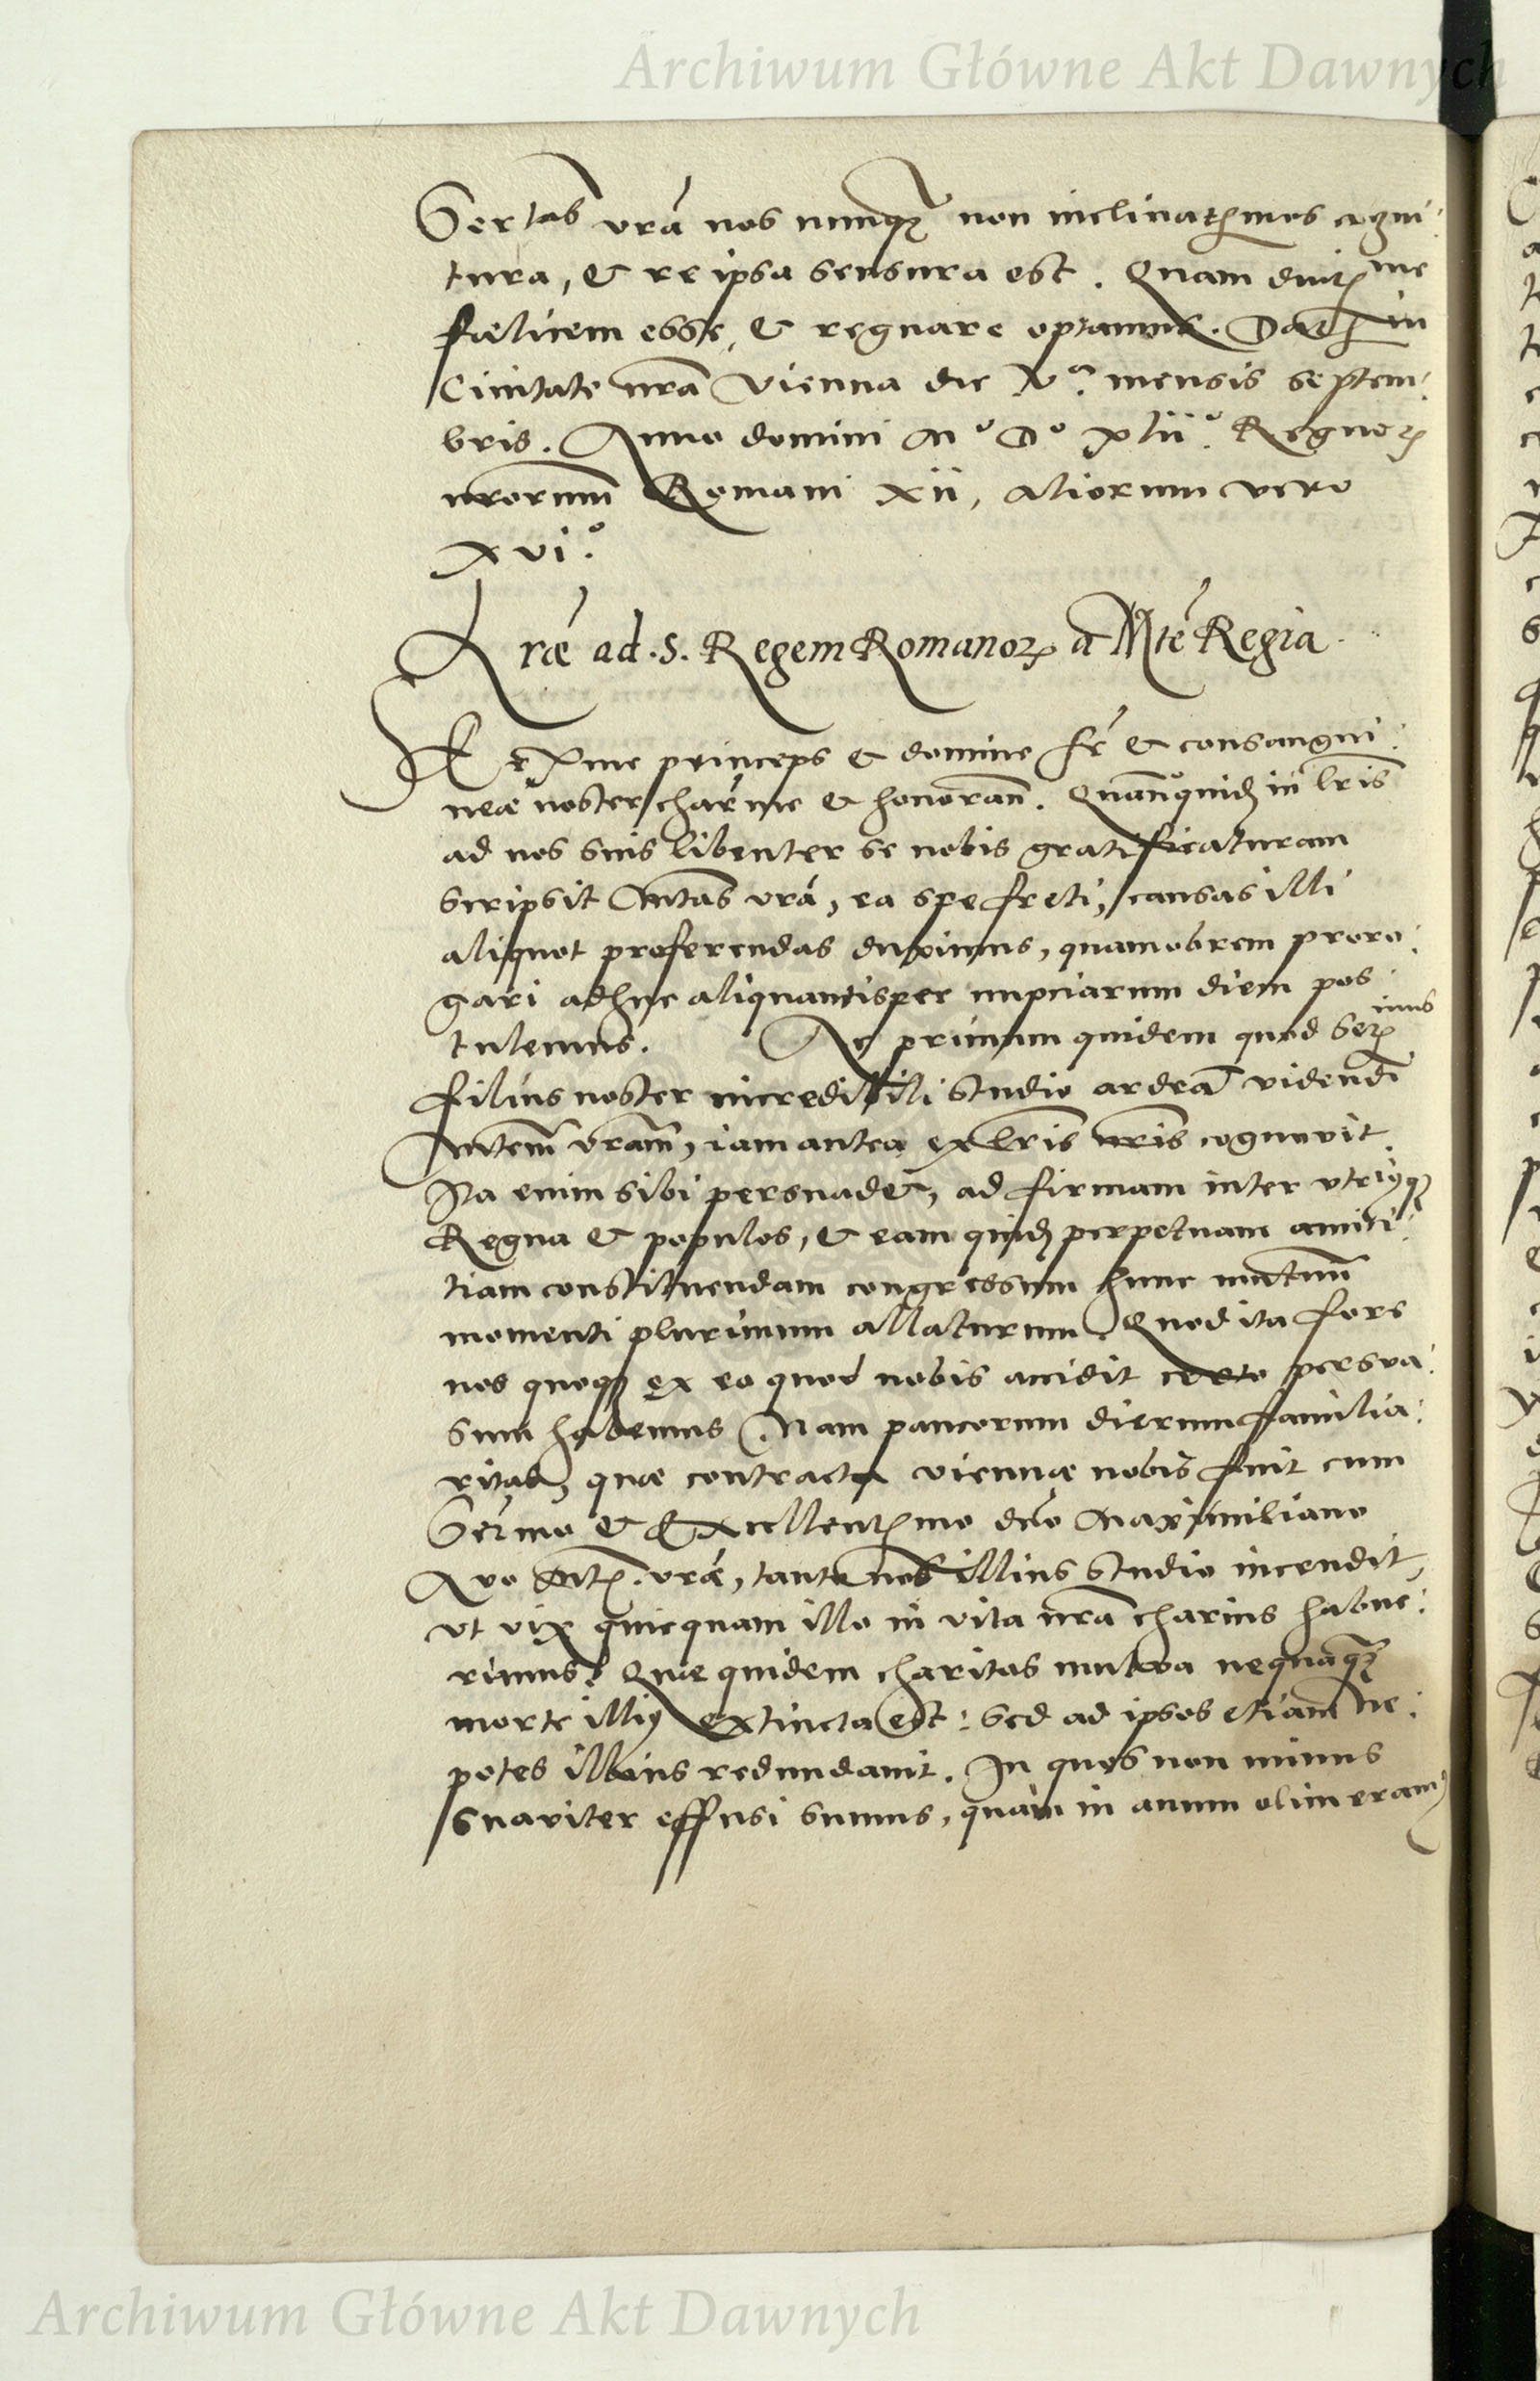 Archiwum Główne Akt Dawnych
Sertas vrã nos nunqz non inclinatissimos cogni:
tura, & re ipsa sensura est. Quam diutissme
fælicem esse, & regnare optamus. Dat in
Ciuitate nrã Vienna die Xa. mensis Septem:
bris. Anno domini Mo Do xlii.o Regnorz
nrorum Romani xii, aliorum vero
xvi.o
Lræ ad. S. Regem Romanorz a Mte Regia.
Serxme princeps & domine fr & consangui:
neæ noster charme & honoran. Quanquidz in lris
ad nos suis libenter se nobis gratificaturam
scripsit Mtas vrã, ea spe freti, causas illi
aliquot proferendas duximus, quamobrem proro:
gari adhuc aliquantisper nupciarum diem pos
tulemus. Ac primum quidem quod Serimus
filius noster incredibili studio ardeat videndi
Mtem vram, iam antea ex lris nris cognouit.
Ita enim sibi persuadet, ad firmam inter vtriusqz
Regna & populos, & eam quidz perpetuam amici:
tiam constituendam congressum hunc mutuum
momenti plurimum allaturum. Quod ita fore
nos quoqz ex eo quod nobis accidit certo persua:
sum habemus. Nam paucorum dierum familia:
ritas, quæ contracta viennæ nobis fuit cum
Sermo & Excellentmo dno Maximiliano
Auo Mtis. vræ, tanto nos illius studio incendit,
vt vix quicquam illo in vita nrã charius habue:
rimus. Quæ quidem charitas mutua nequaqz
morte illius extincta est: sed ad ipsos etiam ne:
potes illius redundauit. In quos non minus
suauiter effusi sumus, quàm in auum olim eramus
Archiwum Główne Akt Dawnych